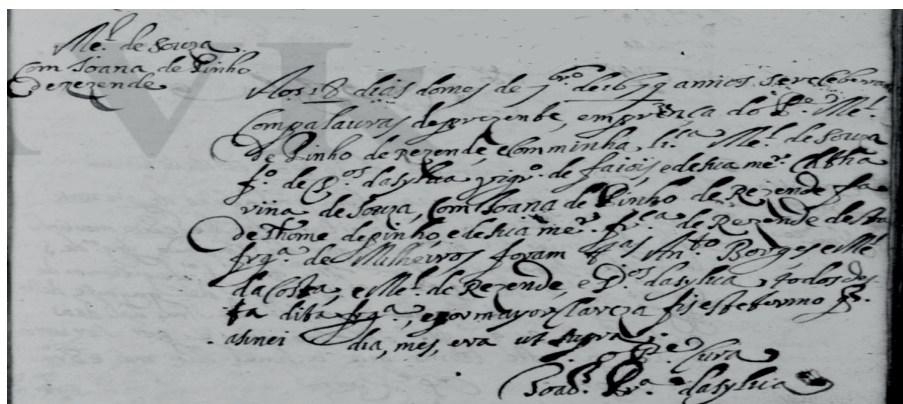 M.el de Souza
com Joana de Pinho
de rezende
Aos 18 dias do mes de 7bro de 1659 annos se reseberam
Com palauras de prezente, em prença do P.e M.el
de Pinho de Rezende, e com minha li.ca M.el de Souza
f.o de D.os da sylua frigr.o de faiois, e de sua mer. Catha
rina de Souza, Com Joana de Pinho de Rezende fa
de Thome de pinho, e de sua mer. fr.ca de Rezende desta
frg.a de Milheiros foram t.as An.to Borges e M.el
da Costa, e M.el de Rezende, e D.os da sylua, todos des
ta dita frg.a, e por mayor Clareza fis este termo q
asinei dia, mes, era ut supra.
O P.e Cura
Joaõ Fr.a da sylua